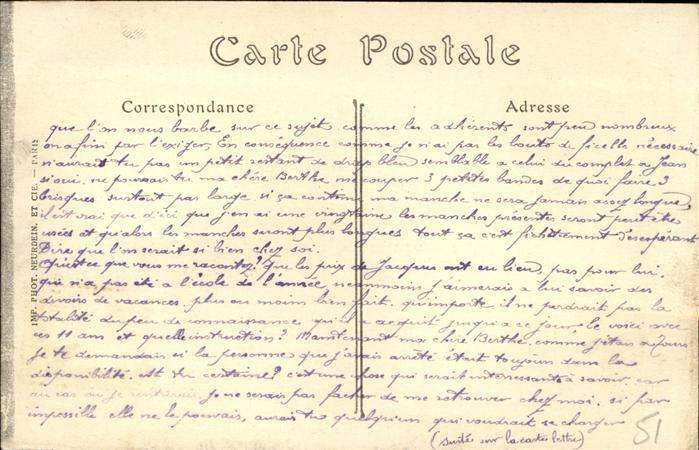 Carte Postale
Correspondance
Adresse
IMP. PHOT. NEURDEIN ET CIE. — PARIS
que l'on nous barbe sur ce sujet comme les adhérents sont peu nombreux
on a fini par l'exiger. En conséquence comme je n'ai pas les bouts de ficelle nécessaire
n'aurait tu pas un petit restant de drap bleu semblable a celui du complet a Jean
si oui, ne pourrais tu ma chère Berthe me couper 3 petites bandes de quoi faire 3
brisques surtout pas large si ça continu ma manche ne sera jamais assez longue,
il est vrai que d'ici que j'en ai une vingtaine les manches présentes seront peut être
usées et qu'alors les manches seront plus longues tout ça c'est fichètrement désespérant
Dire que l'on serait si bien chez soi.
Qu'est ce que vous me racontez? Que les prix de Jacques ont eu lieu, pas pour lui,
qui n'a pas été a l'école de l'année néanmoins j'aimerais a lui savoir des
devoirs de vacances, plus ou moins bien fait, qu'importe il ne perdrait pas la
totalité du peu de connaissance qu'il a acquit jusqu'a ce jour le voici avec
ces 11 ans et quelle instruction? Maintenant ma chère Berthe, comme j'étais a
Je te demandais si la personne que j'avais arrêté était toujours dans la
disponibilité. est tu certaine? c'est une chose qui serait intéressante a savoir, car
au cas ou je rentrerais Je ne serais pas facher de me retrouver chez moi. si par
impossible elle ne le pouvais, aurais tu quelqu'un qui voudrait se charger
(suite sur la carte lettre)
51